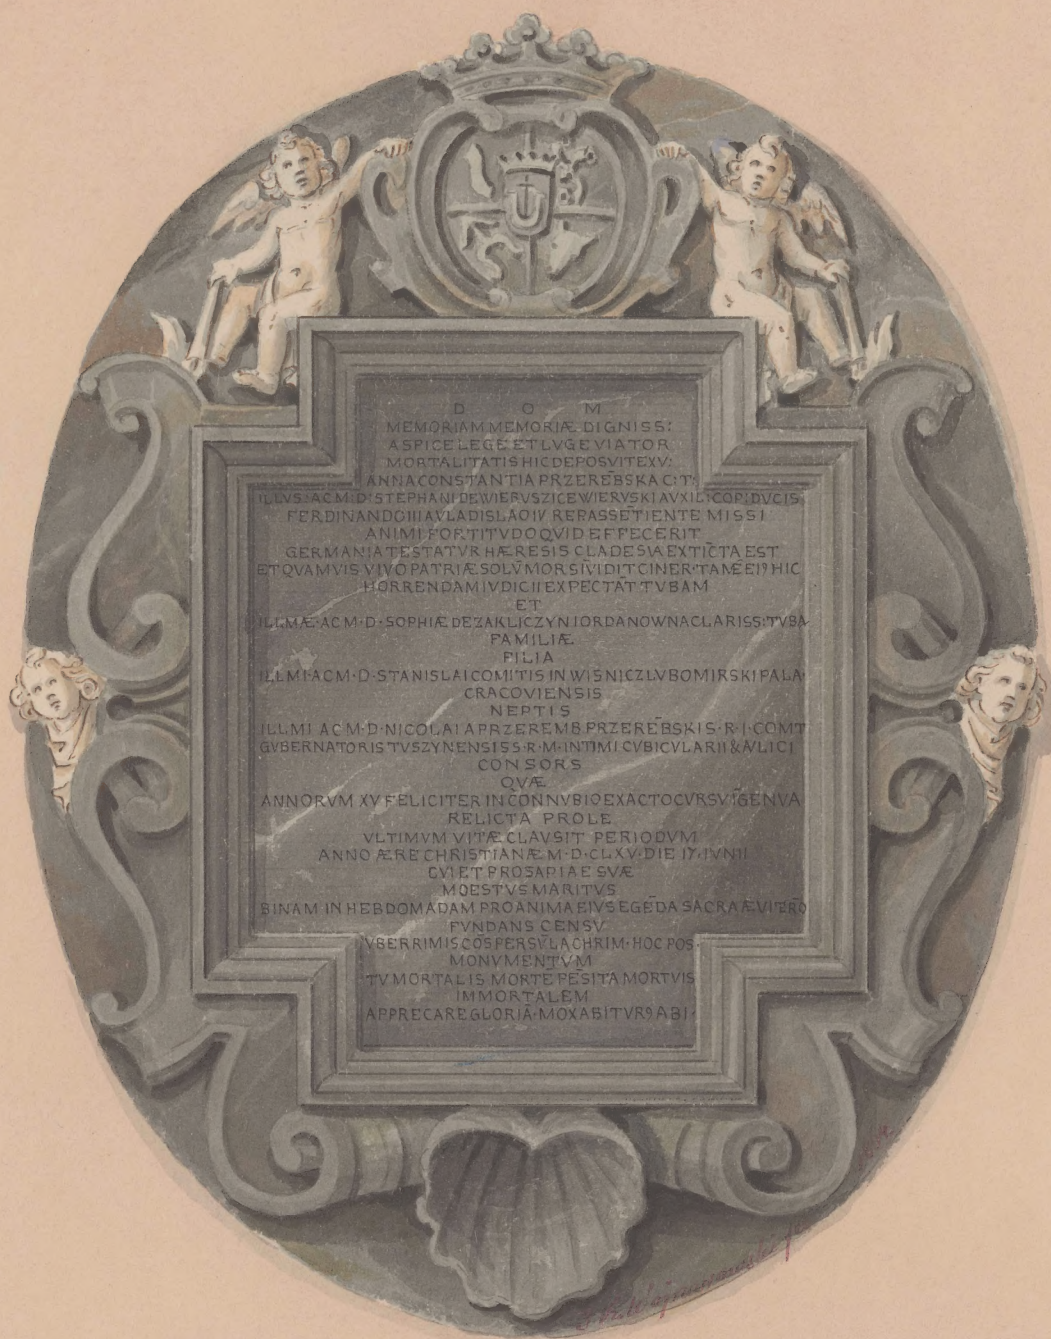 D O M
MEMORIAM MEMORIÆ DIGNISS:
ASPICE LEGE ET LUGE VIATOR
MORTALITATIS HIC DEPOSVIT EXV:
ANNA CONSTANTIA PRZERĒBSKA C:T:
ILLVS: AC M: D: STEPHANI DE WIERUSZICE WIERVSKI AVXIL: COP: DVCIS
FERDINANDO III A VLADISLAO IV REPASSĒTIENTE MISSI
ANIMI FORTITVDO QVID EFFECERIT
GERMANIA TESTATVR HÆRESIS CLADES IA EXTĪCTA EST
ET QVAMVIS VIVO PATRIÆ SOLV̄ MORS
HORRENDAM IVDICII EXPECTĀT TVBAM
ET
ILLMÆ · AC M · D · SOPHIÆ DE ZAKLICZYN IORDANOWNA CLARISS: TVBA
FAMILIÆ
FILIA
ILLMI · AC M · D · STANISLAI COMITIS IN WISNICZ LVBOMIRSKI PALA
CRACOVIENSIS
NEPTIS
ILLMI AC M · D · NICOLAI A PRZEREMB PRZERĒBSKI S · R · I · COMT
GVBERNATORIS TVSZYNENSIS S · R · M · INTIMI CVBICVLARII & AVLICI
CONSORS
QVÆ
ANNORVM XV FELICITER IN CONNVBIO EXACTO CVRSV ĪGENVA
RELICTA PROLE
VLTIMVM VITÆ CLAVSIT PERIODVM
ANNO ÆRE CHRISTIANÆ M · D · CLXV · DIE 17 · IVNII
CVI ET PROSAPIAE SVÆ
MOESTVS MARITVS
BINAM IN HEBDOMADAM PRO ANIMA EIVS EGĒDA SACRA
FVNDANS CENSV
VBERRIMIS CŌSPERSV̄ LACHRIM · HOC POS
MONVMENTVM
TV MORTALIS MORTE PĒSITA MORTVIS
IMMORTALEM
APPRECARE GLORIĀ · MOX ABITVR9 ABI ·